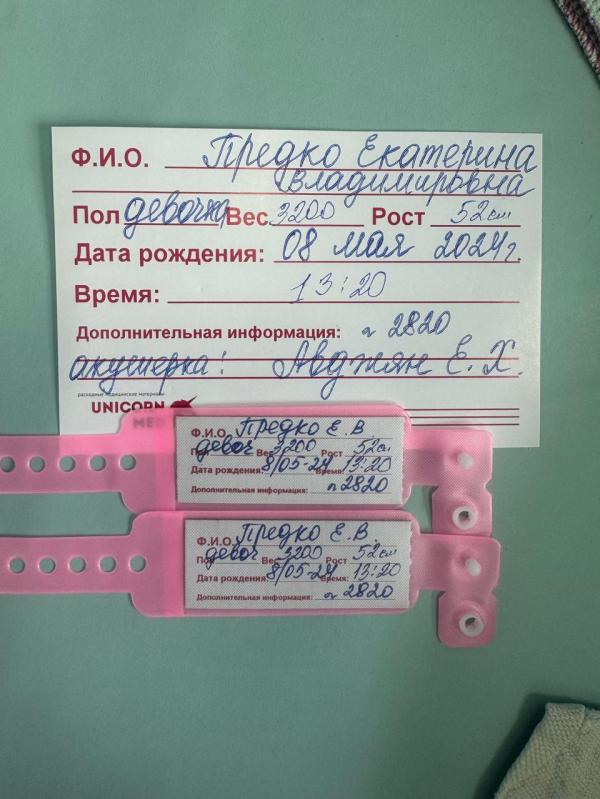 Ф.И.О. Предко Екатерина
Владимировна
Пол девочка Вес 3200 Рост 52см
Дата рождения: 08 мая 2024г.
Время: 13:20
Дополнительная информация: 2820
акушерка: Авджян Е. Х.
расходные медицинские материалы
UNICORN
MED
Ф.И.О. Предко Е.В
Пол девоч Вес 3200 Рост 52см
Дата рождения: 8/05-24 Время: 13:20
Дополнительная информация: 2820
Ф.И.О. Предко Е.В.
Пол девоч Вес 3200 Рост 52см
Дата рождения: 8/05-24 Время: 13:20
Дополнительная информация: 2820